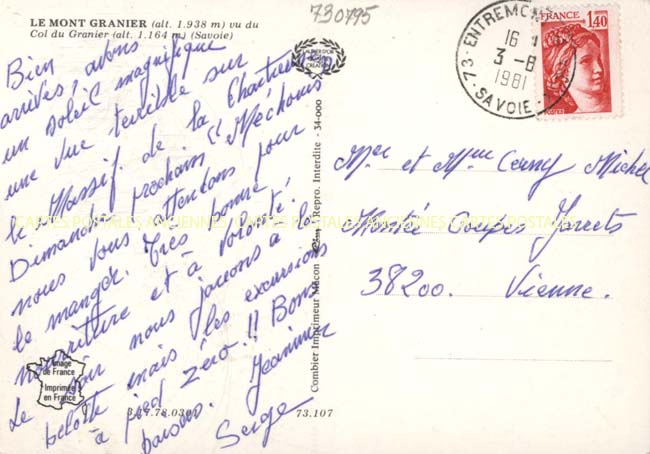 730795
LE MONT GRANIER (alt. 1.938 m) vu du
Col du Granier (alt. 1.164 m) (Savoie)
Bien
arrivés, avons
un soleil magnifique
une vue terrible sur
le Massif de la Chartreuse
Dimanche prochain "Méchouis"
nous vous attendons pour
le manger. Très bonne
nourriture et à volonté.
Le soir nous jouons à la
belote mais les excursions
à pied zéro!! Bons
baisers. Jeannine
Serge
Image
de France
Imprimée
en France
3.27.78.0301
73.107
Combier Imprimeur Mâcon Repro. Interdite - 34-000
73 - ENTREMONT
16
3 - 8
1981
SAVOIE
FRANCE
1,40
POSTES
Mr et Mme Michel
Coupes Jarrets
38200. Vienne.
CARTES POSTALES ANCIENNES CARTES POSTALES ANCIENNES CARTES POSTALES